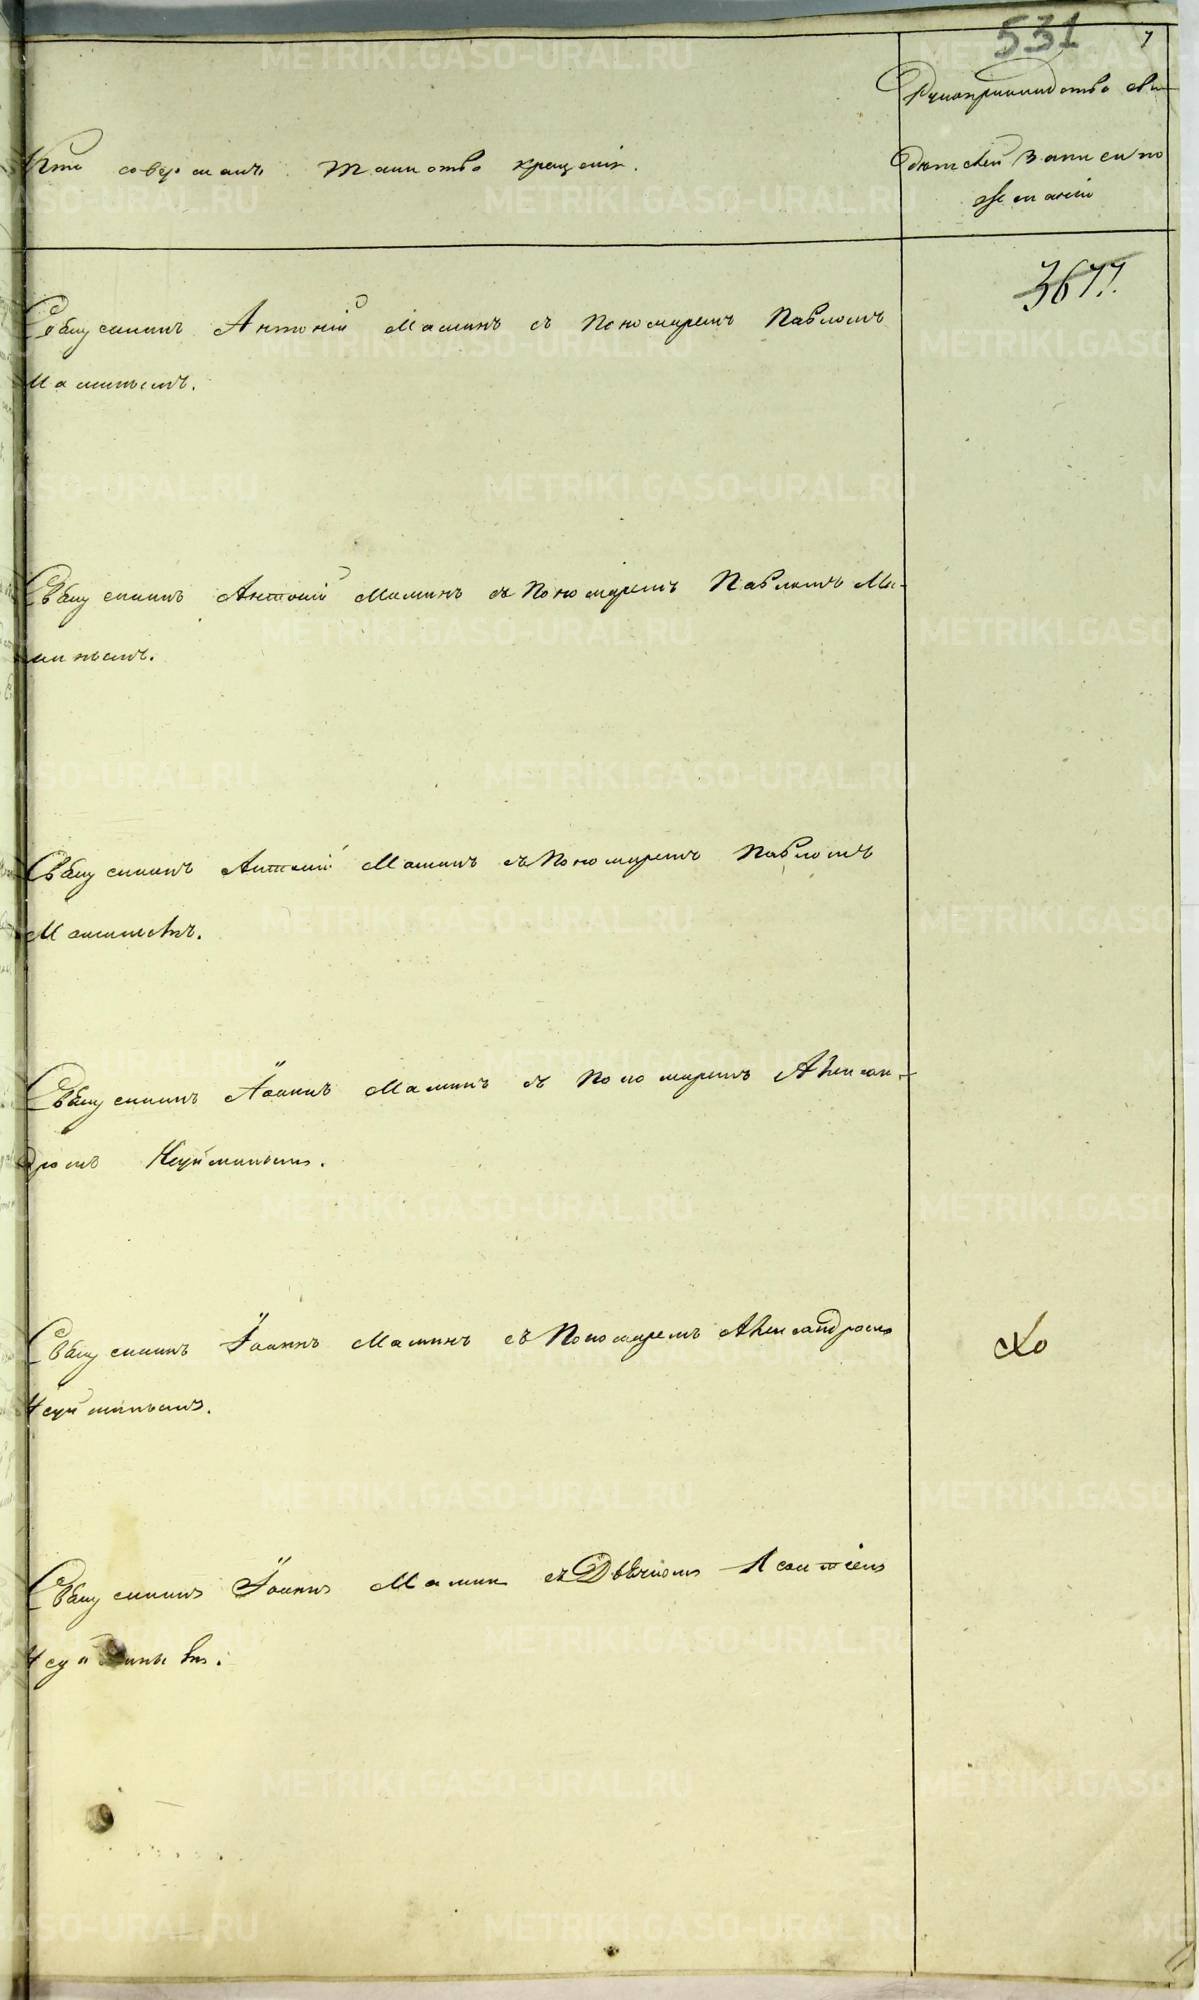 531
7
Рукоприкладство сви-
Кто совершалъ таинство крещенія.
дѣтелей записи по
желанію
3677.
Священникъ Антоній Маминъ съ Пономаремъ Павломъ
Маминымъ.
Священникъ Антоній Маминъ съ Пономаремъ Павломъ Ма-
минымъ.
Священникъ Антоній Маминъ съ Пономаремъ Павломъ
Маминымъ.
Священникъ Іоаннъ Маминъ съ Пономаремъ Алексан-
дромъ Неуйминымъ.
Священникъ Іоаннъ Маминъ съ Пономаремъ Александромъ
Неуйминымъ.
Священникъ Іоаннъ Маминъ съ Дьячкомъ
Неуйминымъ.
METRIKI.GASO-URAL.RU